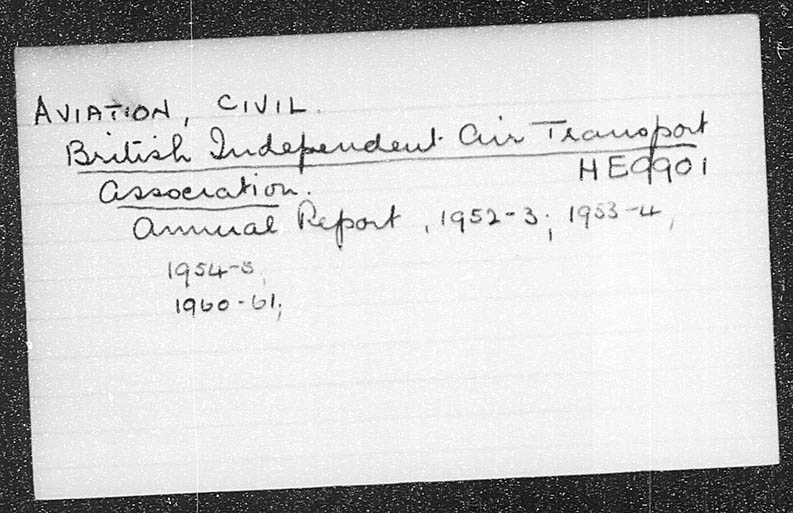 AVIATION, CIVIL.
British Independent Air Transport
HE9901
Association.
Annual Report, 1952-3; 1953-4,
1954-5,
1960-61;